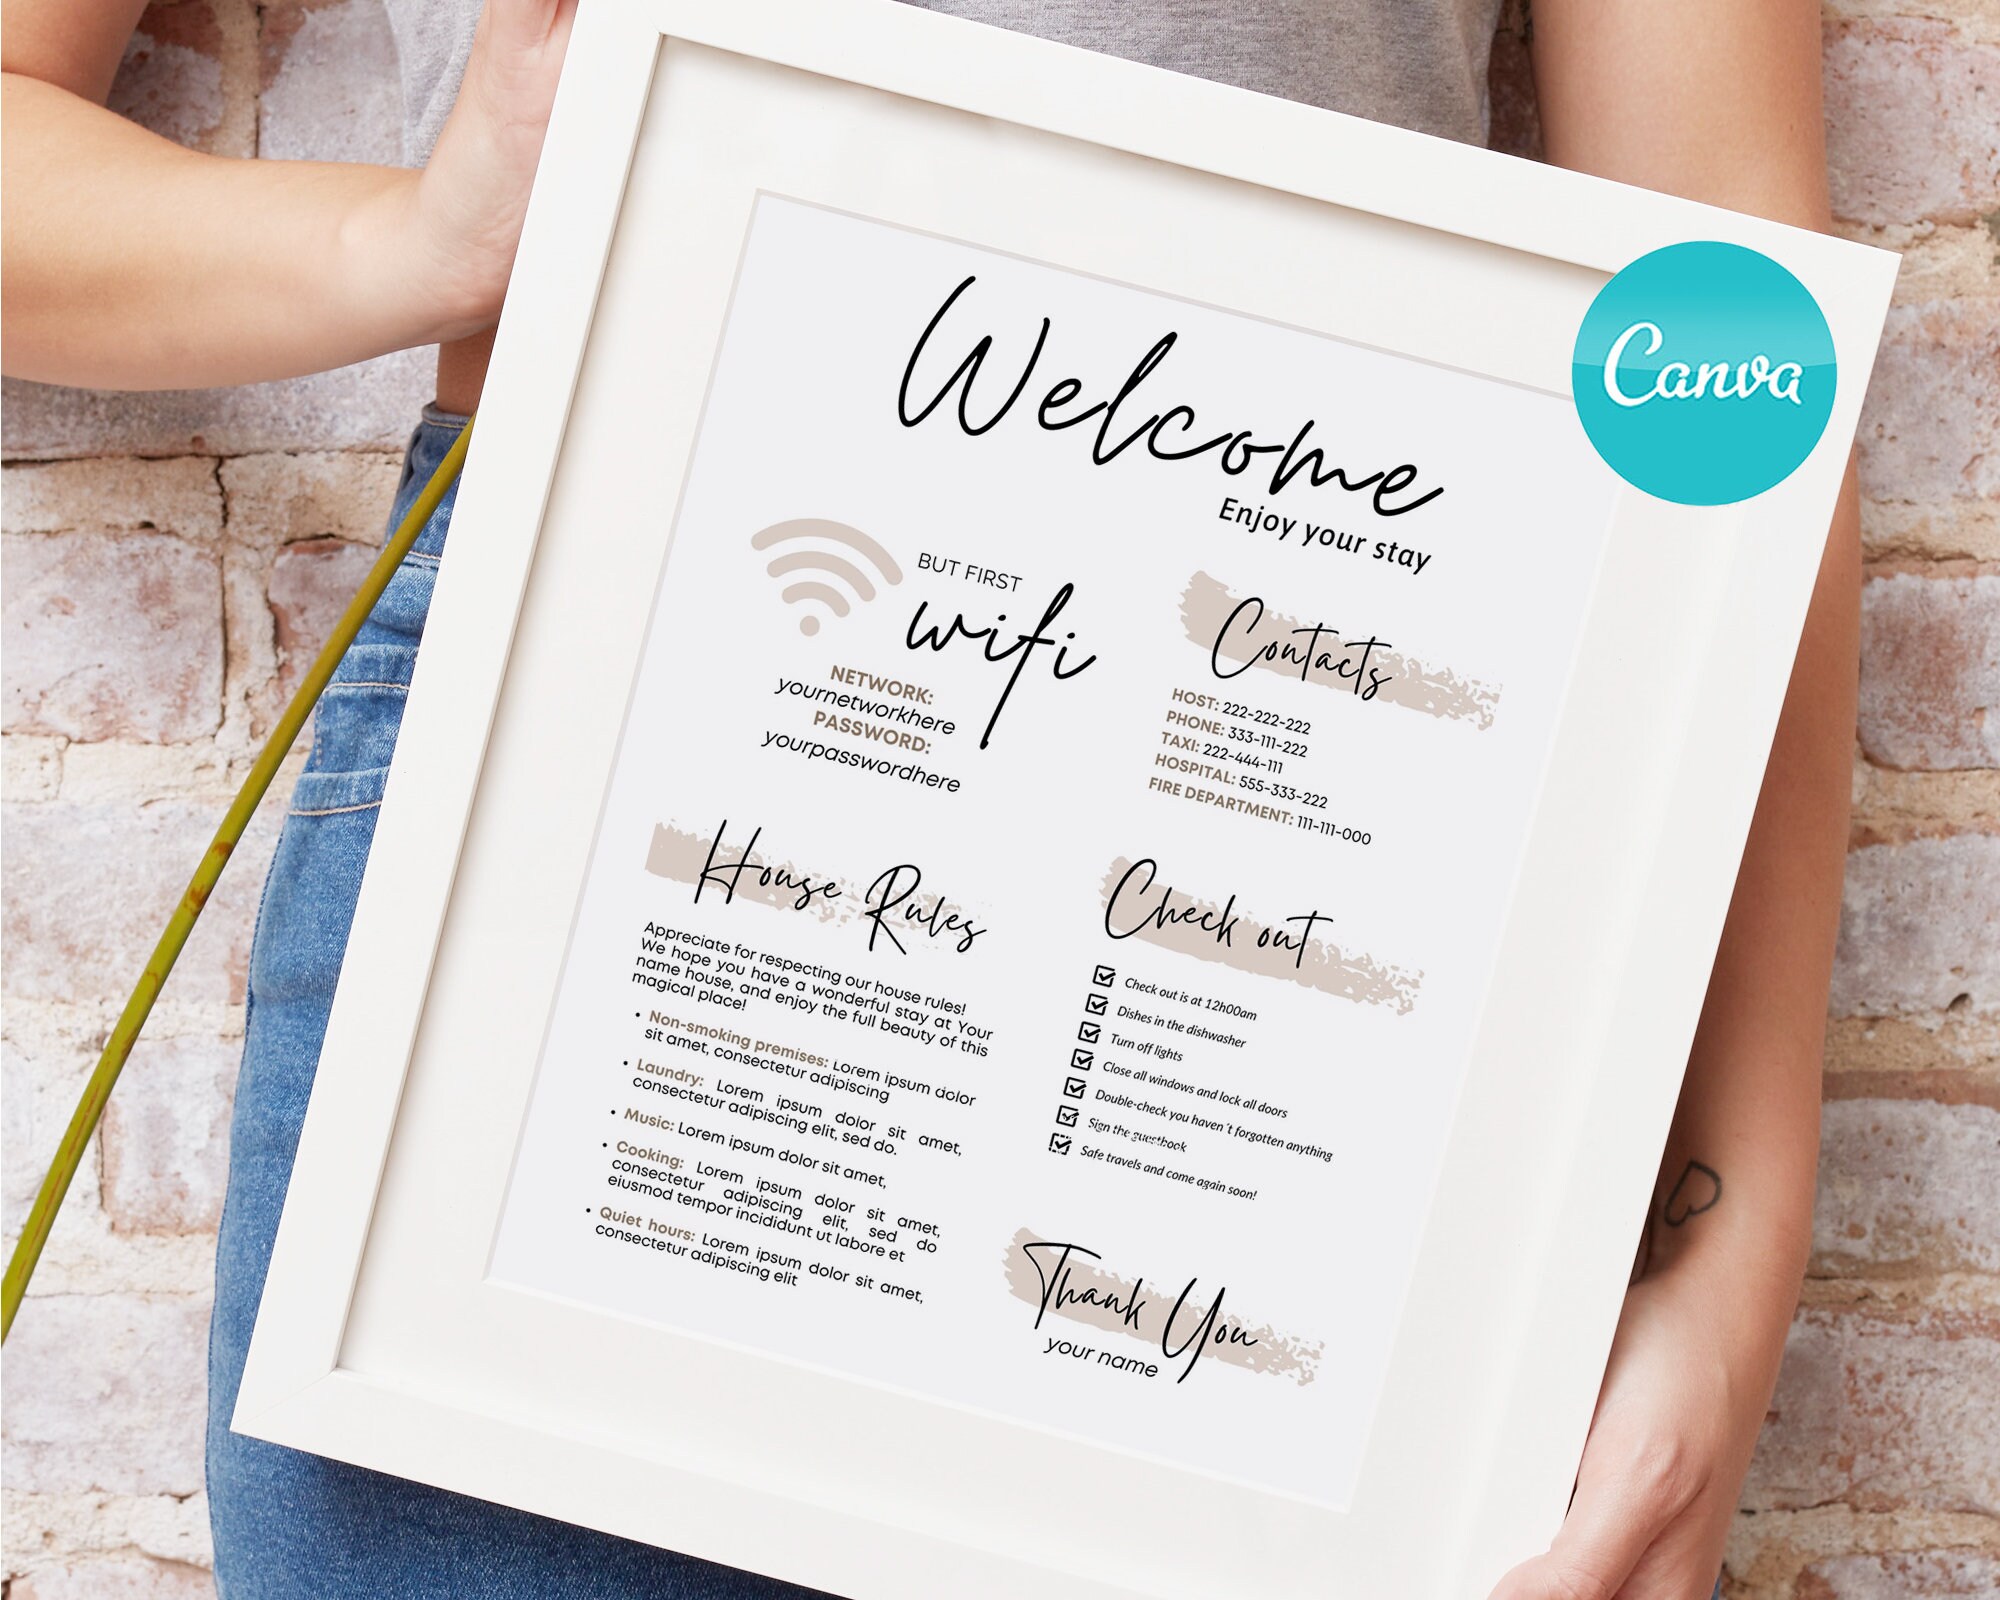 Welcome
Enjoy your stay
Canva
BUT FIRST
wifi
NETWORK:
yournetworkhere
PASSWORD:
yourpasswordhere
Contacts
HOST: 222-222-222
PHONE: 333-111-222
TAXI: 222-444-111
HOSPITAL: 555-333-222
FIRE DEPARTMENT: 111-111-000
House Rules
Appreciate for respecting our house rules!
We hope you have a wonderful stay at Your
name house, and enjoy the full beauty of this
magical place!
• Non-smoking premises: Lorem ipsum dolor
sit amet, consectetur adipiscing
• Laundry: Lorem ipsum dolor sit amet,
consectetur adipiscing elit, sed do.
• Music: Lorem ipsum dolor sit amet,
• Cooking: Lorem ipsum dolor sit amet,
consectetur adipiscing elit, sed do
eiusmod tempor incididunt ut labore et
• Quiet hours: Lorem ipsum dolor sit amet,
consectetur adipiscing elit
Check out
Check out is at 12h00am
Dishes in the dishwasher
Turn off lights
Close all windows and lock all doors
Double-check you haven´t forgotten anything
Sign the guestbook
Safe travels and come again soon!
Thank You
your name